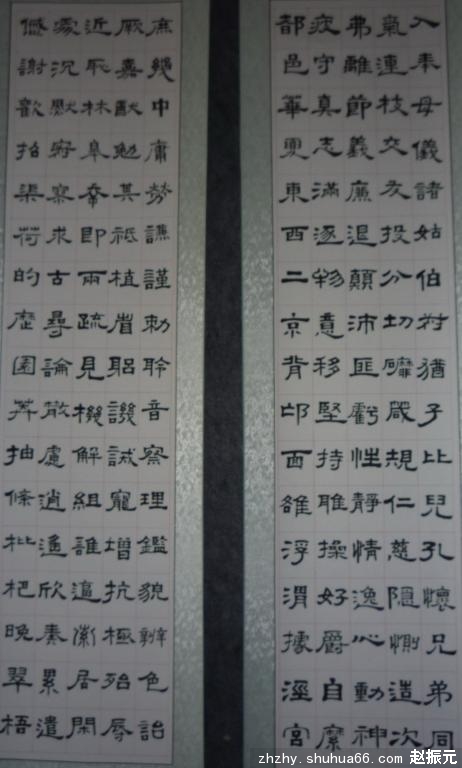 入奉母儀諸姑伯叔猶子比兒孔懷兄弟同
氣連枝交友投分切磨箴規仁慈隱惻造次
弗離節義廉退顛沛匪虧性靜情逸心動神
疲守真志滿逐物意移堅持雅操好爵自縻
都邑華夏東西二京背邙面雒浮渭據涇宮
庶幾中庸勞謙謹勑聆音察理鑑貌辨色詒
厥嘉猷勉其祗植省躬譏誡寵增抗極殆辱
近恥林皋幸即兩疏見機解組誰逼索居閑
處沉默寂寥求古尋論散慮逍遙欣奏累遣
慼謝歡招渠荷的歷園莽抽條枇杷晚翠梧
zhzhy.shuhua66.com 赵振元